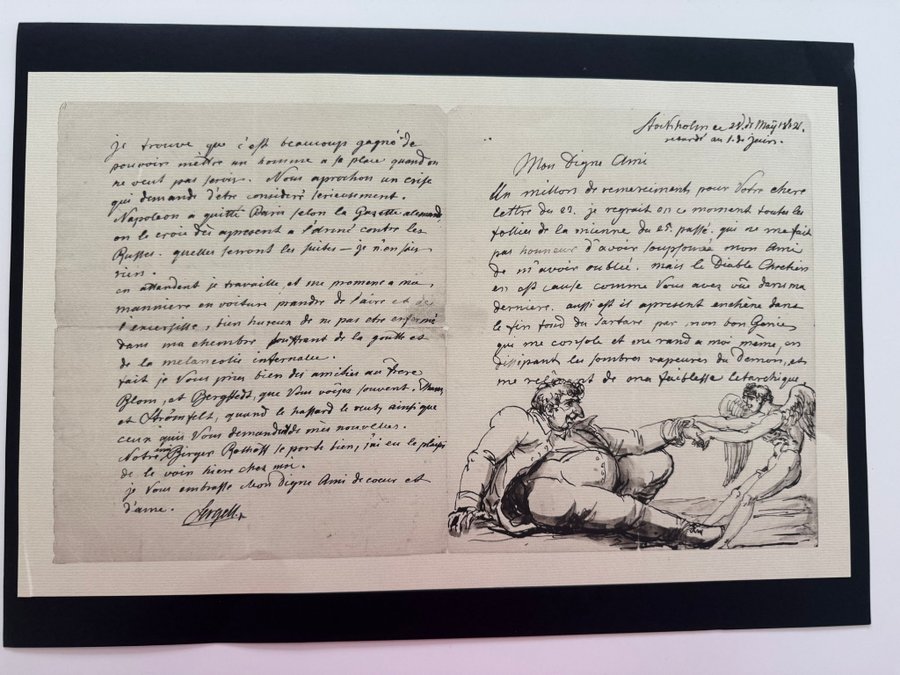 Stockholm ce 28 de Maÿ 1812.
retardé au 1. de juin.
Mon Digne Ami
Un millions de remerciments pour Votre chere
Lettre du 22. je regrait en ce moment toutes les
follies de la mienne du 25. passé. qui ne me fait
pas honneur d'avoir soupsonée mon Ami
de m'avoir oublié. mais le Diable Chretien
en est cause comme Vous avez vúe dans ma
derniere. aussi est il apresent enchêné dans
le fin fond du Tartare par mon bon Genie
qui me console et me rand a moi même, en
dissipant les sombres vapeures du Demon, et
me relevant de ma faiblesse letarchique
je trouve que c'est beaucoup gagné de
pouvoir mettre un homme a sa place quand on
ne veut pas servir. Nous aprochon un crise
qui demande d'être consideré serieusement.
Napoleon a quitté Paris selon la Gazette alemand,
on le croie dês apresent a l'armé contre les
Russes. quelles seront les suites — je n'en sais
rien.
en attendent je travaille, et me promene a ma
manniere en voiture prandre de l'aire et de
l'excersisse, bien hureux de ne pas etre enfermé
dans ma chcombre souffrant de la goutte et
de la melancolie infernale.
fait je Vous pries bien des amities au frere
Blom, et Bergstedt, que Vous voiÿés souvent.
et Strömfelt, quand le hassard le veut, ainsi que
ceux quis Vous demandent de mes nouvelles.
Notre ami Birger Rothoff se porte bien, j'ai eu le plaisir
de le voir hiere chez moi.
je Vous embrasse Mon Digne Ami de coeur et
d'ame.
Sergell